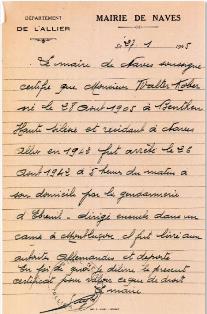 DÉPARTEMENT
DE L'ALLIER
MAIRIE DE NAVES
le 27 1
Le maire de Naves soussigné
certifie que Monsieur Walter Kober
né le 28 Aout 1905 à Beuthen
Haute Silésie et résidant à Naves
Allier en 1942 fut arrêté le 26
Aout 1942 à 5 heures du matin à
son domicile par la gendarmerie
d'Ebreuil dirigé ensuite dans un
camp à Montluçon il fut livré aux
autorités Allemandes et déporté
En foi de quoi je délivre le présent
certificat pour valoir ce que de droit
Le maire